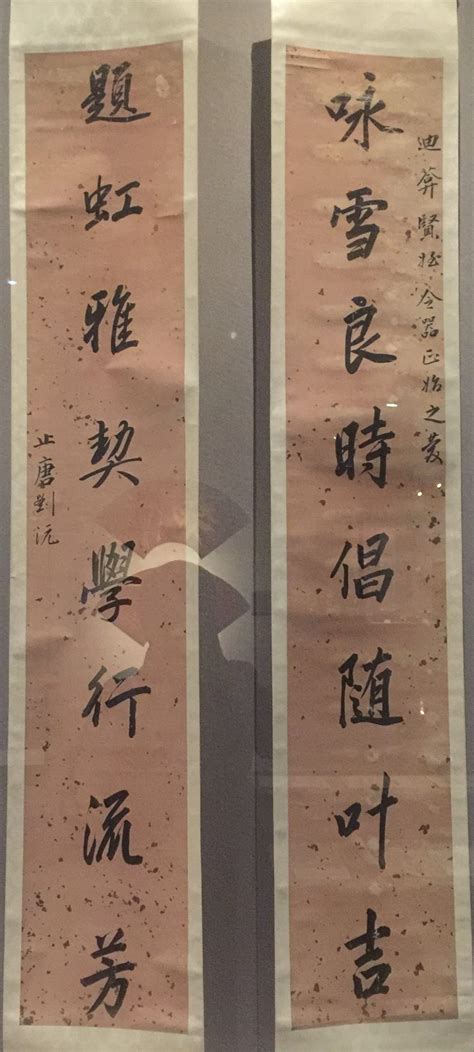 迪葊賢姪令器正始之慶
咏雪良時倡随叶吉
題虹雅契學行流芳
止唐劉沅